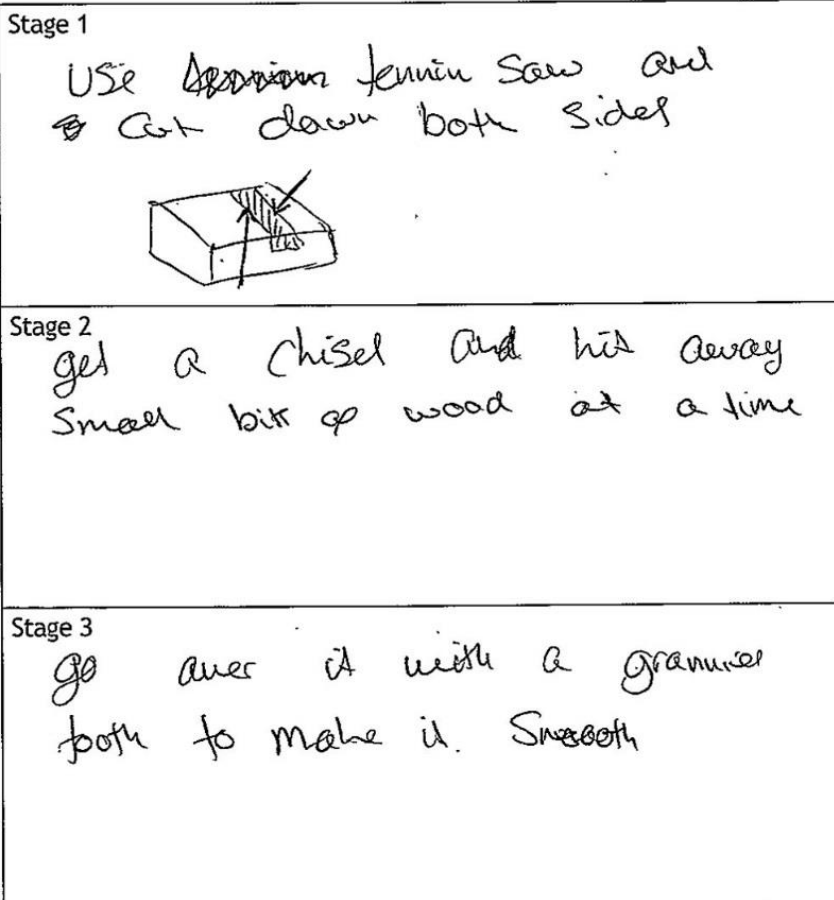 Stage 1
Use tennin saw and
Cut down both sides
Stage 2
get a chisel and hit away
Small bits of wood at a time
Stage 3
go over it with a grannies
tooth to make it. Smooth